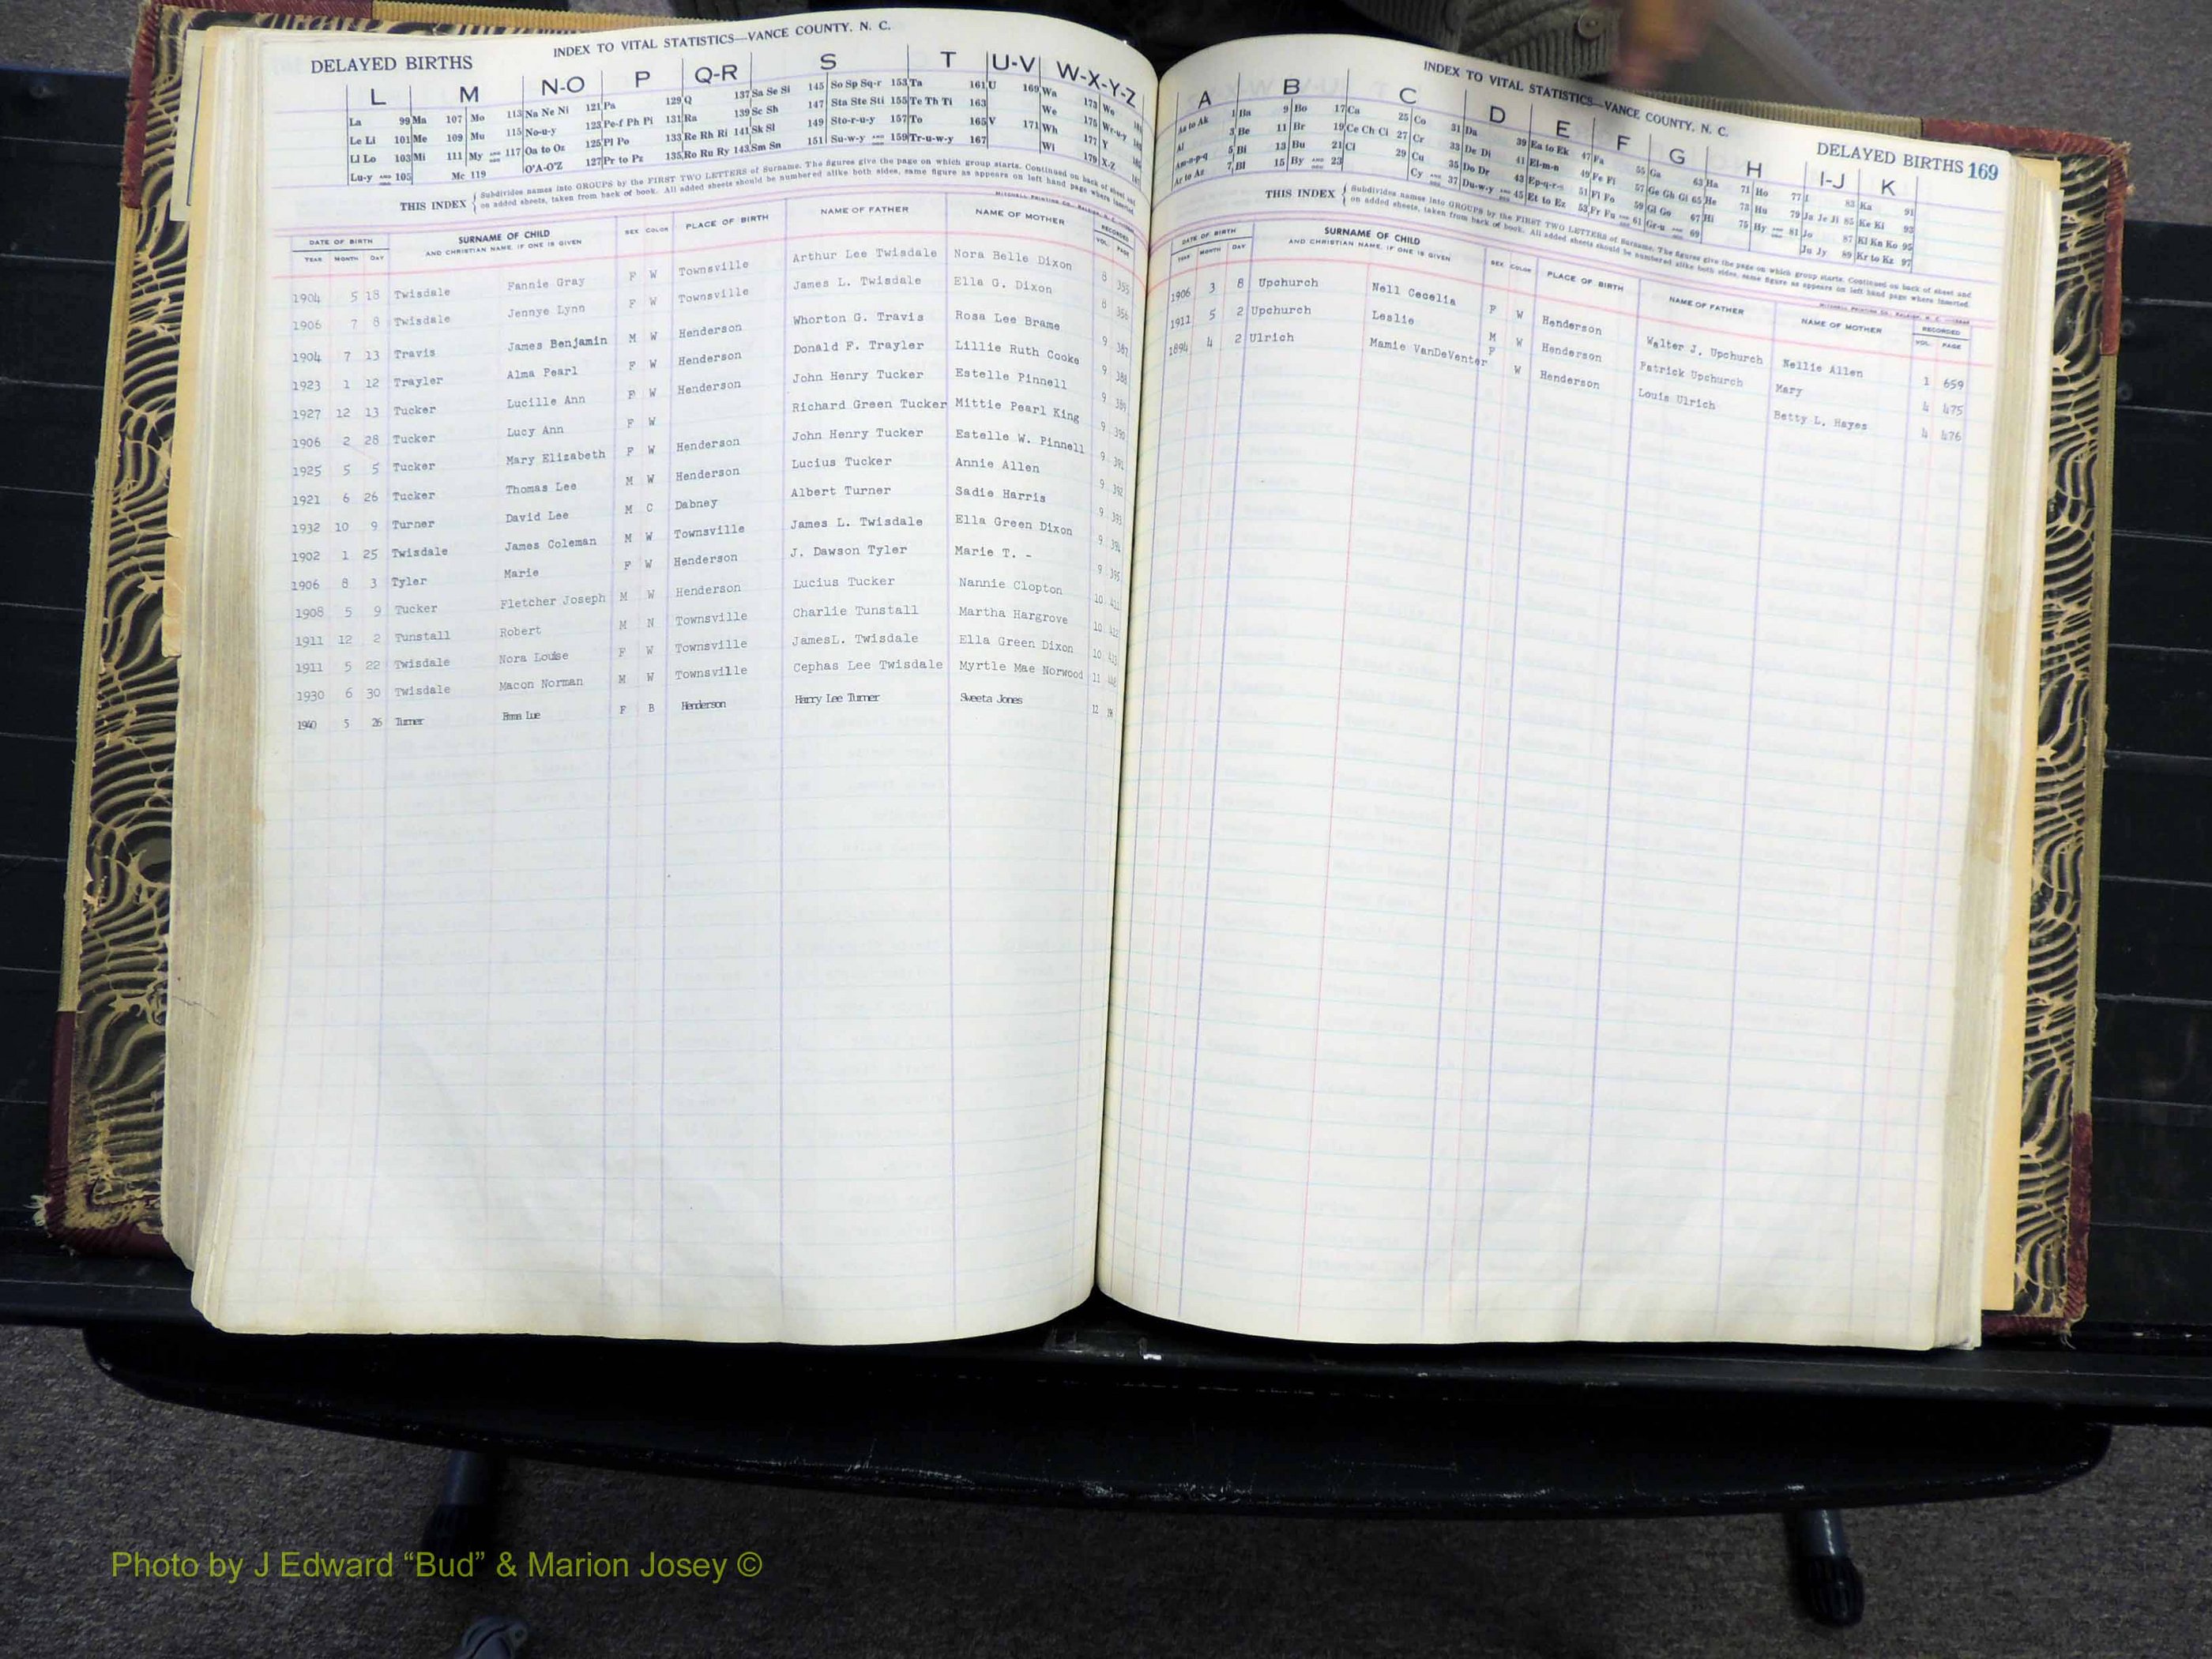 DELAYED BIRTHS
INDEX TO VITAL STATISTICS—VANCE COUNTY, N. C.
L M N-O P Q-R S T U-V W-X-Y-Z
La 99 Ma 107 Mo 113 Na Ne Ni 121 Pa 129 Q 137 Sa Se Si 145 So Sp Sq-r 153 Ta 161 U 169 Wa 173 Wo
Le Li 101 Me 109 Mu 115 No-u-y 123 Pe-f Ph Pi 131 Ra 139 Sc Sh 147 Sta Ste Sti 155 Te Th Ti 163 We 175 Wr-u-y
Ll Lo 103 Mi 111 My AND 117 Oa to Oz 125 Pl Po 133 Re Rh Ri 141 Sk Sl 149 Sto-r-u-y 157 To 165 V 171 Wh 177 Y
Lu-y AND 105 Mc 119 O'A-O'Z 127 Pr to Pz 135 Ro Ru Ry 143 Sm Sn 151 Su-w-y AND 159 Tr-u-w-y 167 Wi 179 X-Z
THIS INDEX { Subdivides names into GROUPS by the FIRST TWO LETTERS of Surname. The figures give the page on which group starts. Continued on back of sheet and
on added sheets, taken from back of book. All added sheets should be numbered alike both sides, same figure as appears on left hand page where inserted.
DATE OF BIRTH SURNAME OF CHILD SEX COLOR PLACE OF BIRTH NAME OF FATHER NAME OF MOTHER RECORDED
YEAR MONTH DAY AND CHRISTIAN NAME, IF ONE IS GIVEN VOL. PAGE
1904 5 18 Twisdale Fannie Gray F W Townsville Arthur Lee Twisdale Nora Belle Dixon 8 355
1906 7 8 Twisdale Jennye Lynn F W Townsville James L. Twisdale Ella G. Dixon 8 356
1904 7 13 Travis James Benjamin M W Henderson Whorton G. Travis Rosa Lee Brame 9 387
1923 1 12 Trayler Alma Pearl F W Henderson Donald F. Trayler Lillie Ruth Cooke 9 388
1927 12 13 Tucker Lucille Ann F W Henderson John Henry Tucker Estelle Pinnell 9 389
1906 2 28 Tucker Lucy Ann F W Richard Green Tucker Mittie Pearl King 9 390
1925 5 5 Tucker Mary Elizabeth F W Henderson John Henry Tucker Estelle W. Pinnell 9 391
1921 6 26 Tucker Thomas Lee M W Henderson Lucius Tucker Annie Allen 9 392
1932 10 9 Turner David Lee M C Dabney Albert Turner Sadie Harris 9 393
1902 1 25 Twisdale James Coleman M W Townsville James L. Twisdale Ella Green Dixon 9 394
1906 8 3 Tyler Marie F W Henderson J. Dawson Tyler Marie T. - 9 395
1908 5 9 Tucker Fletcher Joseph M W Henderson Lucius Tucker Nannie Clopton 10
1911 12 2 Tunstall Robert M N Townsville Charlie Tunstall Martha Hargrove 10
1911 5 22 Twisdale Nora Louise F W Townsville JamesL. Twisdale Ella Green Dixon 10
1930 6 30 Twisdale Macon Norman M W Townsville Cephas Lee Twisdale Myrtle Mae Norwood 11
1940 5 26 Turner Emma Lue F B Henderson Harry Lee Turner Sweeta Jones 12
INDEX TO VITAL STATISTICS—VANCE COUNTY, N. C.
DELAYED BIRTHS 169
A B C D E F G H I-J K
Aa to Ak 1 Ba 9 Bo 17 Ca 25 Co 31 Da 39 Ea to Ek 47 Fa 55 Ga 63 Ha 71 Ho 77 I 83 Ka 91
Al 3 Be 11 Br 19 Ce Ch Ci 27 Cr 33 De Di 41 El-m-n 49 Fe Fi 57 Ge Gh Gi 65 He 73 Hu 79 Ja Je Ji 85 Ke Ki 93
Am-o-p-q 5 Bi 13 Bu 21 Cl 29 Cu 35 Do Dr 43 Ep-q-r-s 51 Fl Fo 59 Gl Go 67 Hi 75 Hy AND 81 Jo 87 Kl Kn Ko 95
Ar to Az 7 Bl 15 By AND 23 Cy AND 37 Du-w-y AND 45 Et to Ez 53 Fr Fu AND 61 Gr-u AND 69 Ju Jy 89 Kr to Kz 97
THIS INDEX { Subdivides names into GROUPS by the FIRST TWO LETTERS of Surname. The figures give the page on which group starts. Continued on back of sheet and
on added sheets, taken from back of book. All added sheets should be numbered alike both sides, same figure as appears on left hand page where inserted.
DATE OF BIRTH SURNAME OF CHILD SEX COLOR PLACE OF BIRTH NAME OF FATHER NAME OF MOTHER RECORDED
YEAR MONTH DAY AND CHRISTIAN NAME, IF ONE IS GIVEN VOL. PAGE
1906 3 8 Upchurch Nell Cecelia F W Henderson Walter J. Upchurch Nellie Allen 1 659
1911 5 2 Upchurch Leslie M W Henderson Patrick Upchurch Mary 4 475
1894 4 2 Ulrich Mamie VanDeVenter F W Henderson Louis Ulrich Betty L. Hayes 4 476
Photo by J Edward “Bud” & Marion Josey ©